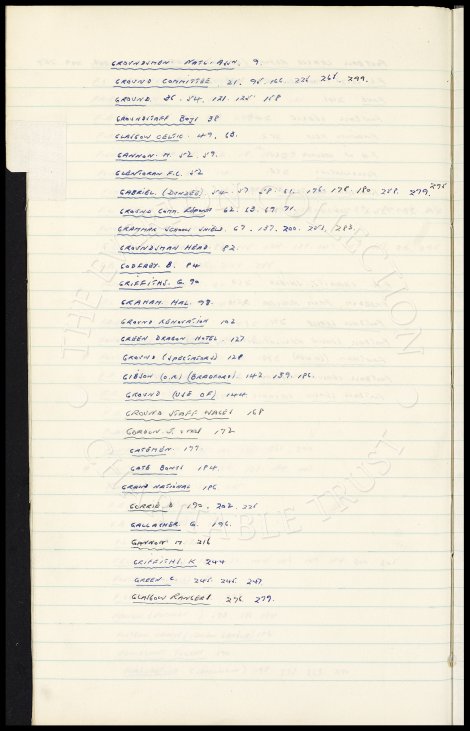 GROUNDSMEN NATL. ASSN. 9.
GROUND COMMITTEE. 21. 95. 166. 226. 268. 299.
GROUND. 36. 54. 121. 125. 158
GROUNDSTAFF BOYS 38
GLASGOW CELTIC. 49. 63.
GANNON. M. 52. 59.
GLENTORAN F.C. 52
GABRIEL. (DUNDEE). 54. 57. 58. 61. 176. 178. 180. 258. 279. 295
GROUND COMM. REPORT 62. 63. 69. 71.
GRAMMAR SCHOOL SHIELD. 67. 157. 200. 251. 283.
GROUNDSMAN HEAD. 82.
GODFREY. B. 84
GRIFFITHS. G. 90
GRAHAM. HAL. 98.
GROUND RENOVATION 102
GREEN DRAGON HOTEL. 127
GROUND (SPECTATORS) 128
GIBSON (O.R) (BRADFORD). 142. 159. 186.
GROUND (USE OF) 144
GROUND STAFF WAGES 168
GORDON J. 172
GATEMEN. 177.
GATE BONUS 184.
GRAND NATIONAL 186
GORRIE D 190. 202. 226
GALLAGHER. G. 196.
GANNON M. 216
GRIFFITHS K 244
GREEN C. 245. 246. 247
GLASGOW RANGERS 276. 279.
THE EVERTON COLLECTION
CHARITABLE TRUST